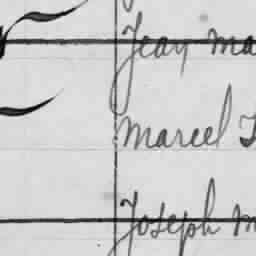 Jean Ma
Marcel
Joseph M